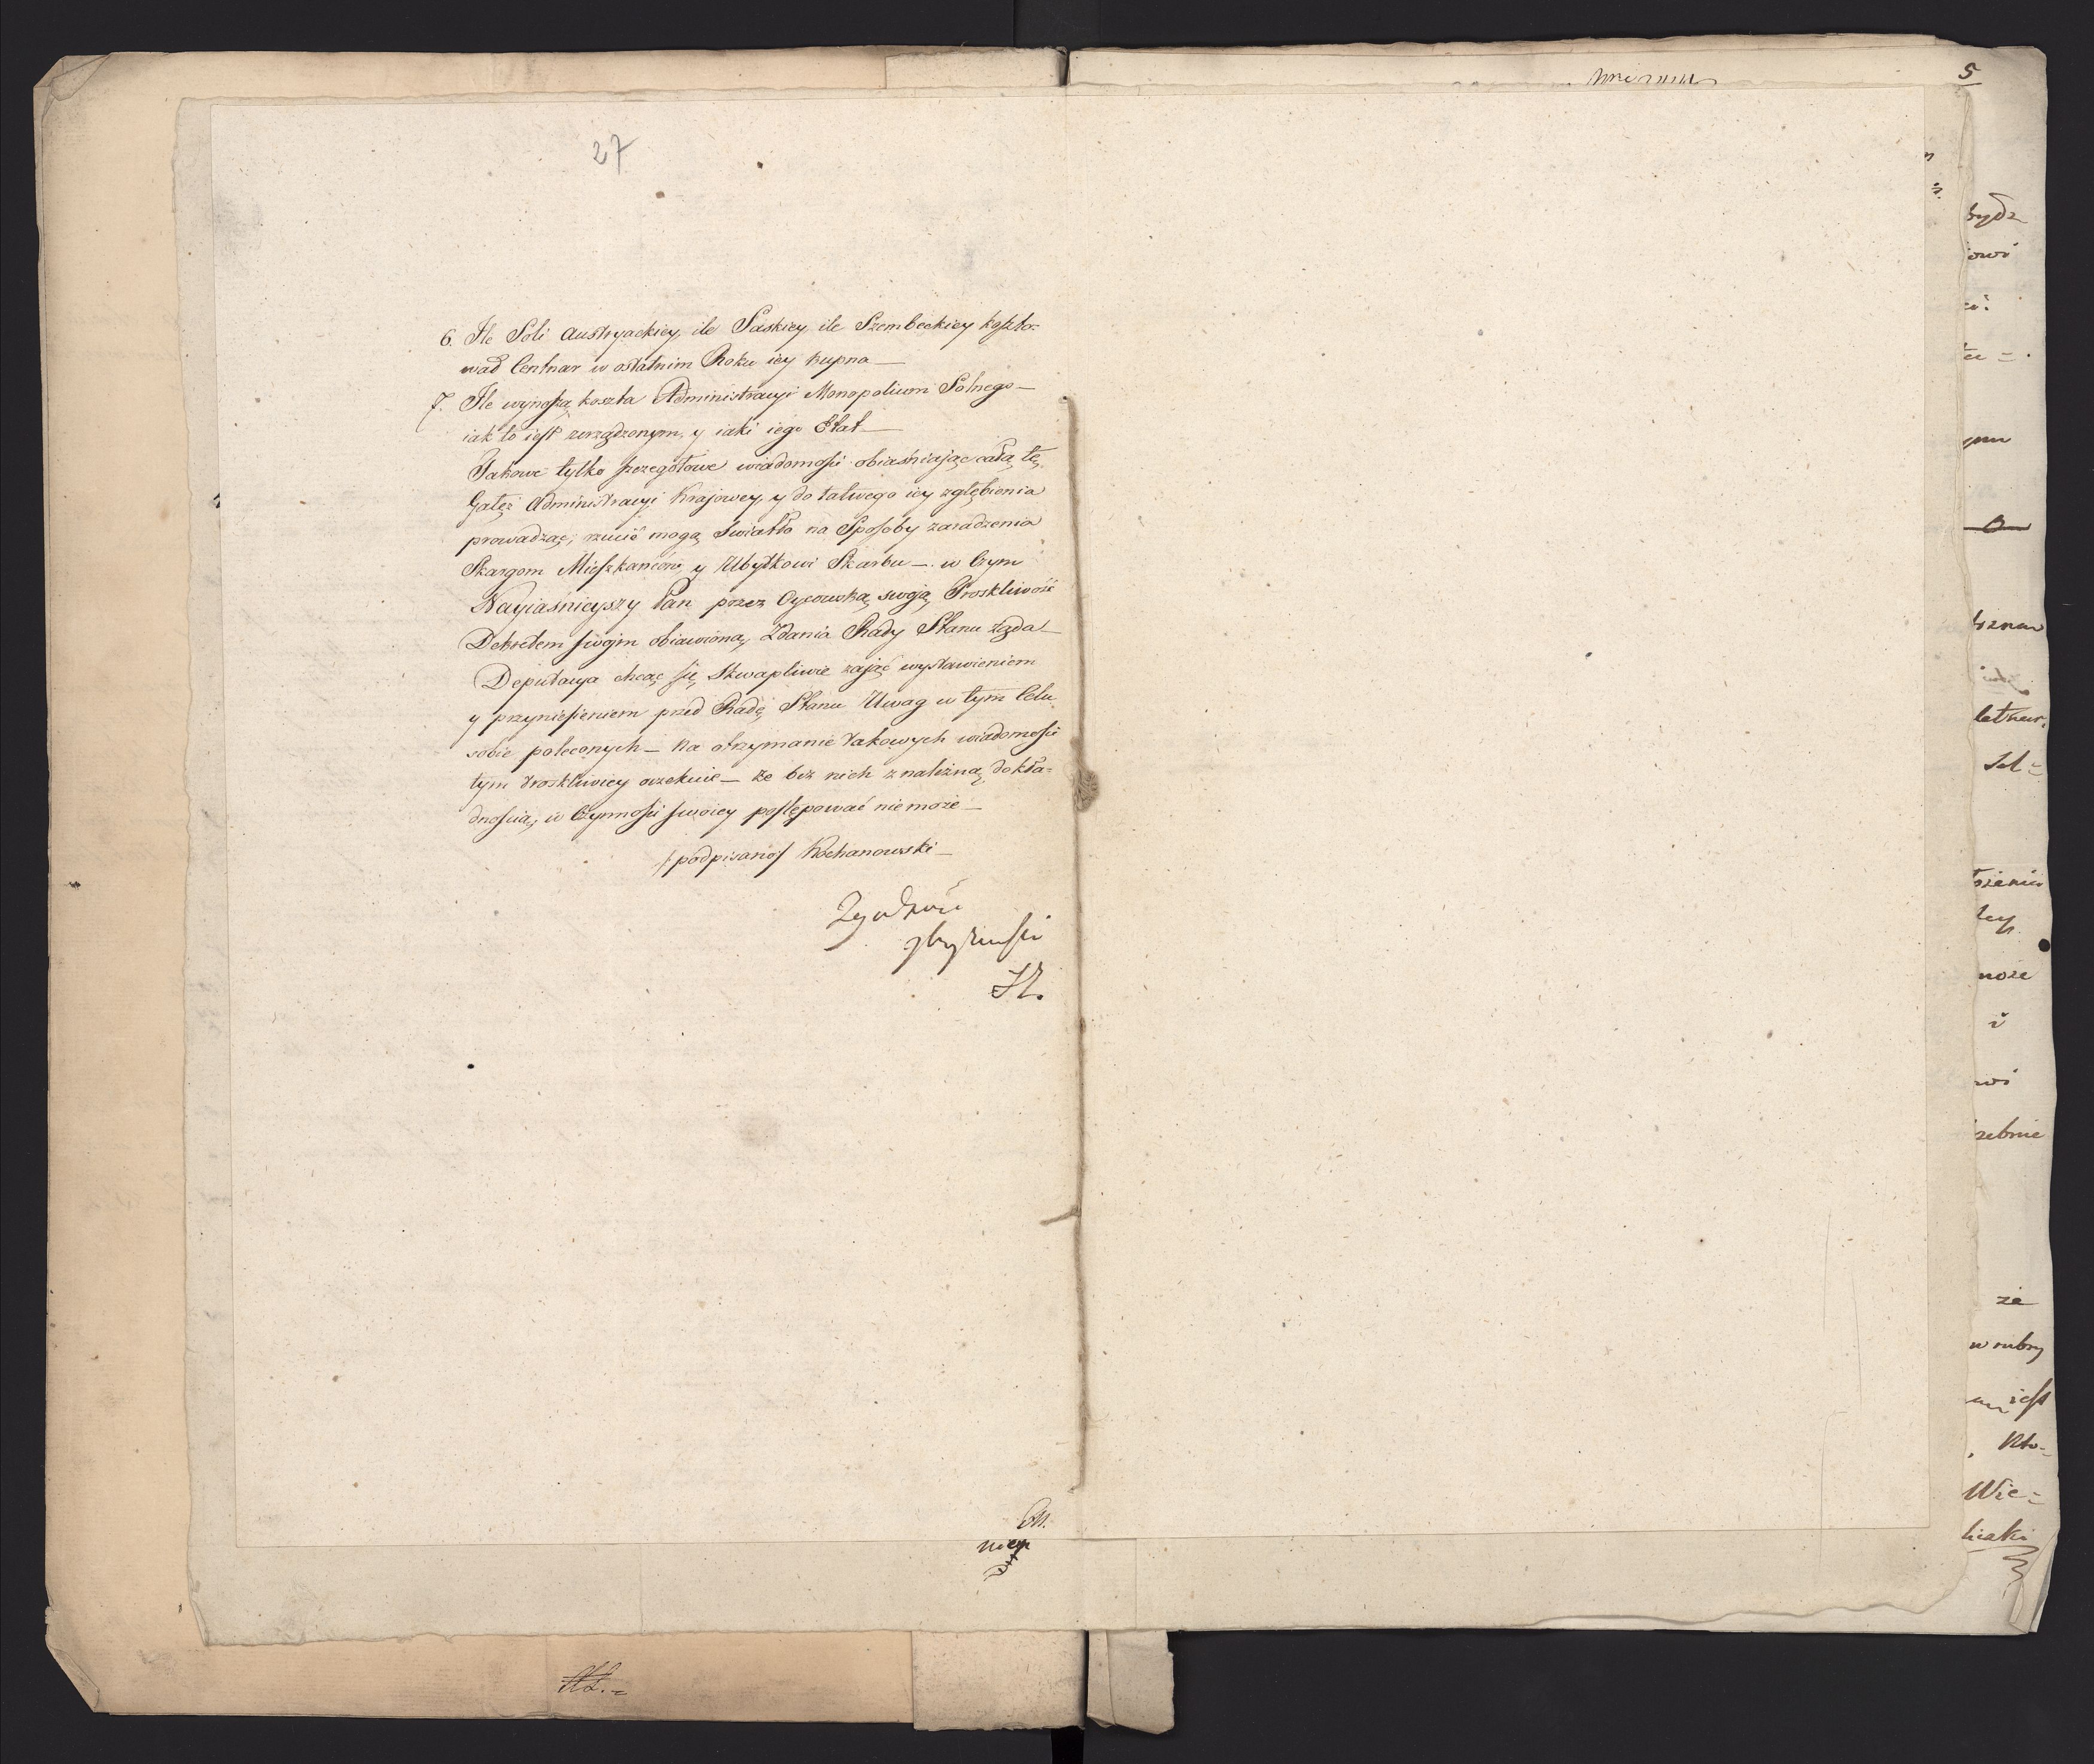 27
6. Ile Soli Austryackiey, ile Saskiey, ile Szembeckiey koszto-
wał Centnar w ostatnim Roku iey kupna —
7. Ile wynoszą koszta Administracyi Monopolium Solnego —
iak to iest urządzonym, y iaki iego Etat —
Takowe tylko szczegółowe wiadomości obiaśniaiąc całą tę
Gałęź Administracyi Krajowey, y do łatwego iey zgłębienia
prowadząc, rzucić mogą Światło na Sposoby zaradzenia
Skargom Mieszkańców, y Ubytkowi Skarbu — w Czym
Nayiaśnieyszy Pan przez Oycowską swoją Troskliwość
Dekretem swym obiawioną, Zdania Rady Stanu żąda —
Deputacya chcąc się skwapliwie zająć wystawieniem
y przyniesieniem przed Radę Stanu Uwag w tym Celu
sobie poleconych — na otrzymanie takowych wiadomości
tym troskliwiey oczekuie — że bez nich z należną dokła-
dnością, w Czynności swoiey postępować nie może —
/:podpisano:/ Kochanowski —
5
bydz
iowi
O
może
i
że
w rubry
iest
Kto-
Wie-